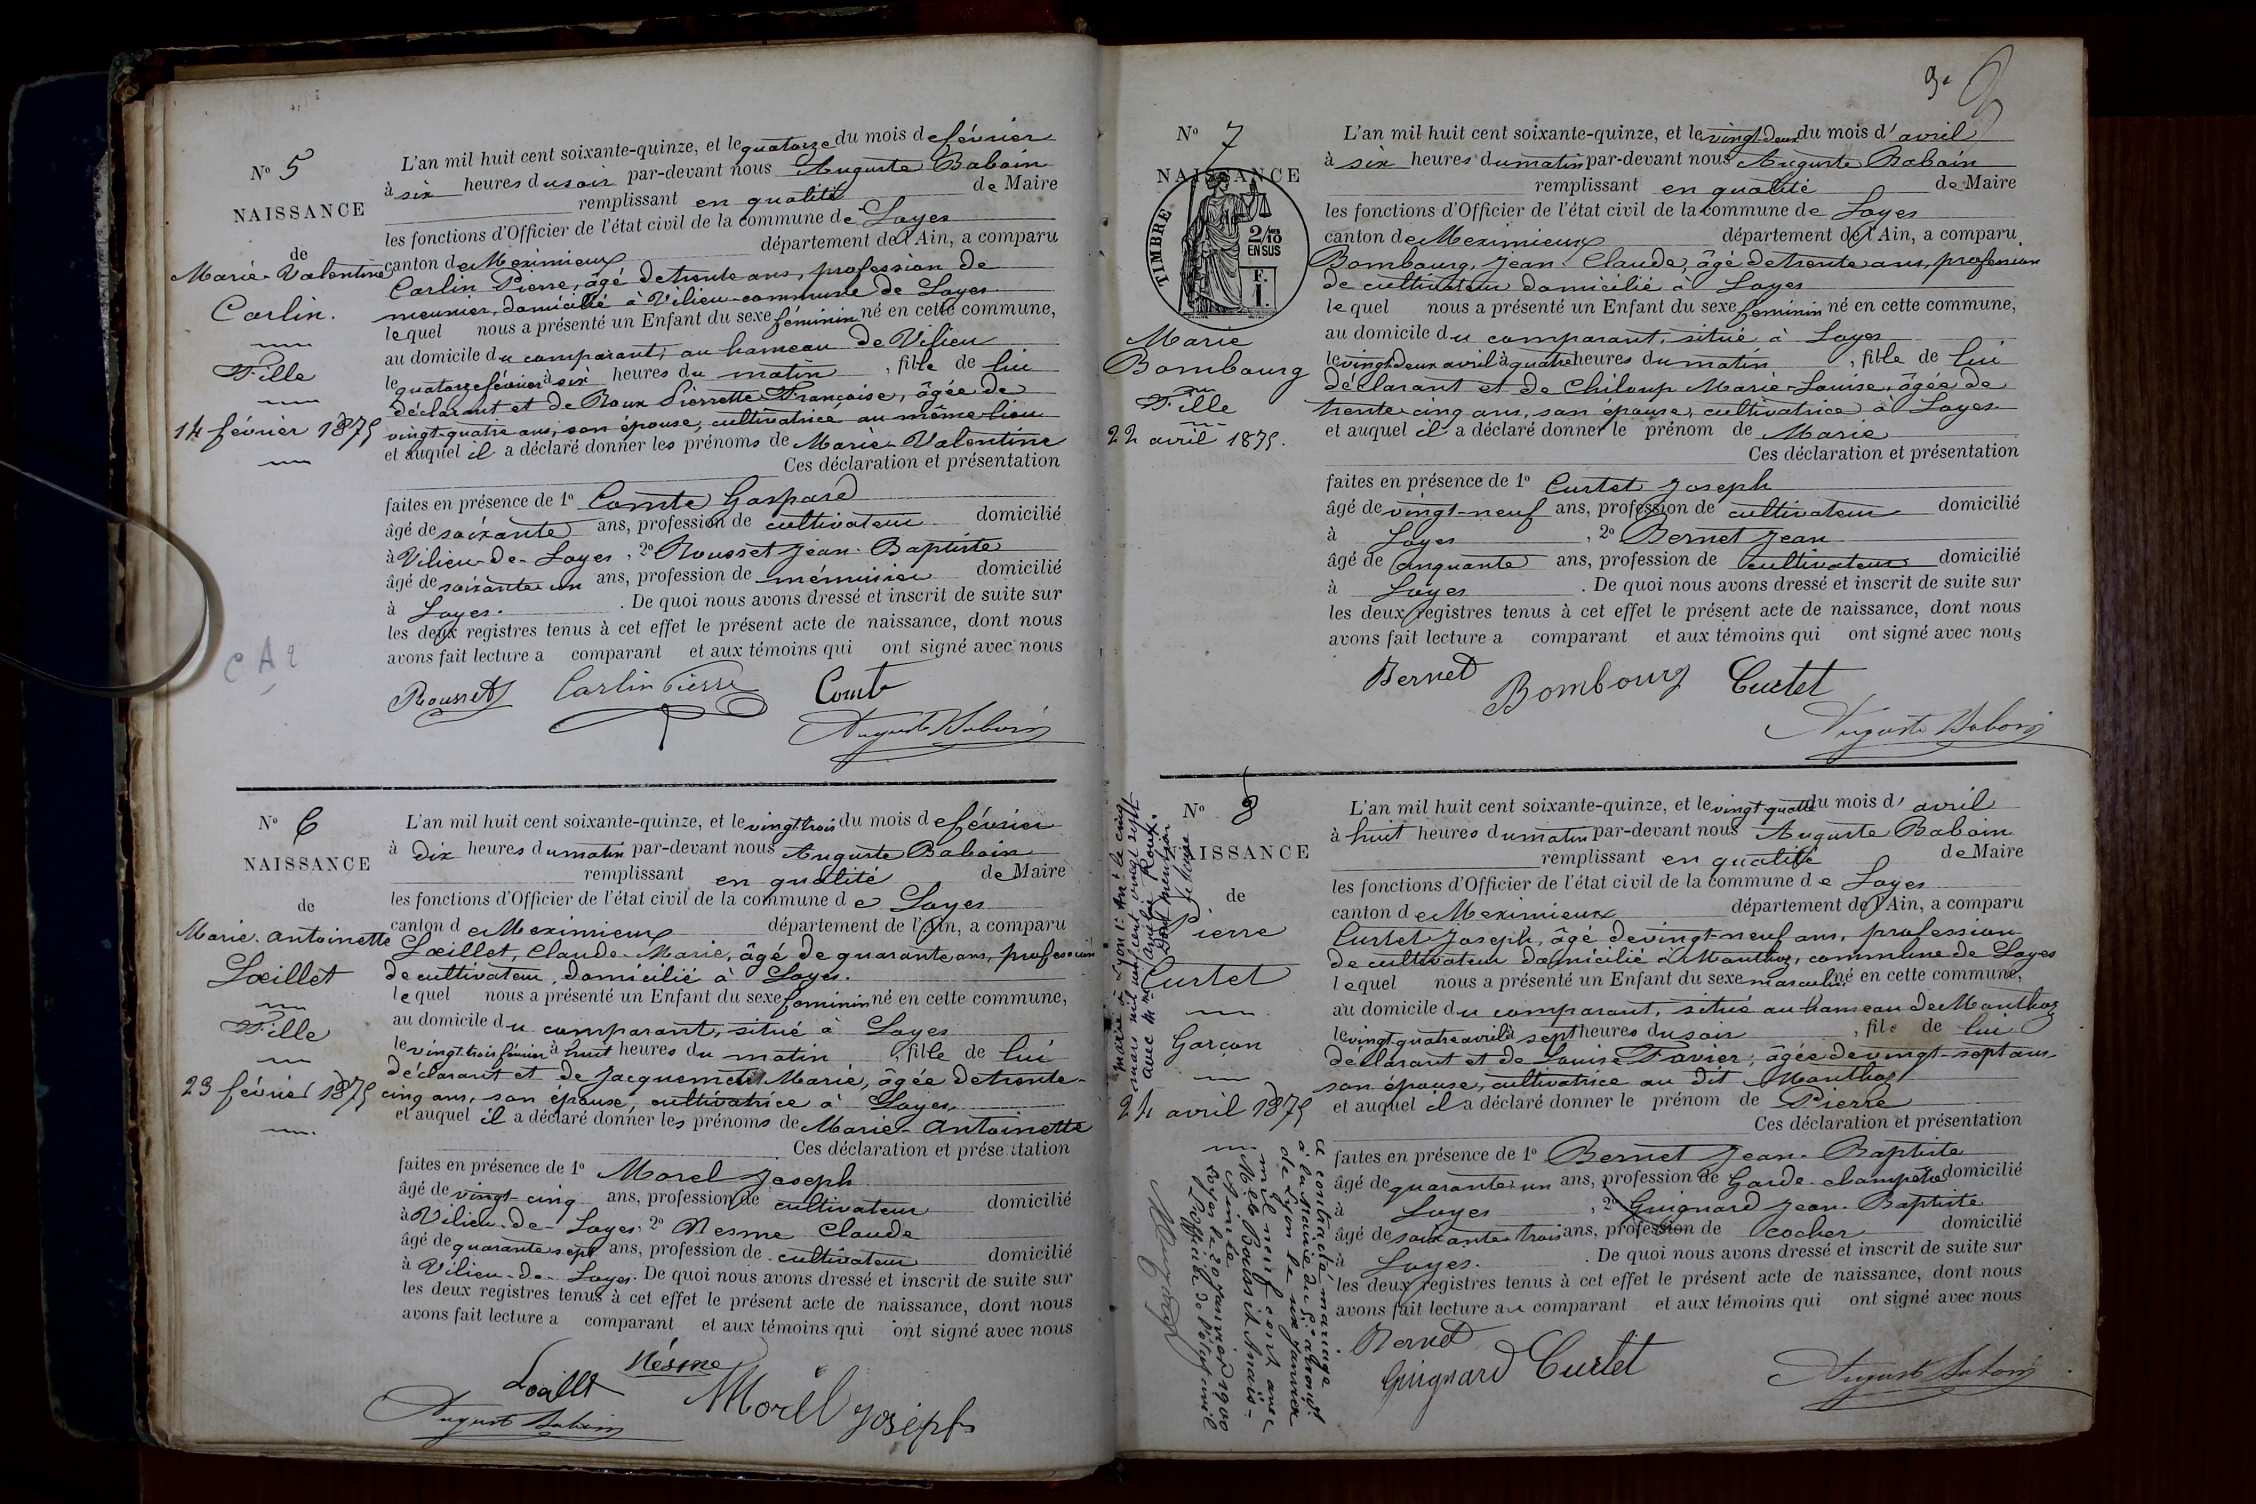 N° 5
NAISSANCE
de
Marie-Valentine
Carlin.
Fille
14 février 1875
L'an mil huit cent soixante-quinze, et le quatorze du mois de février
à six heures du soir par-devant nous Auguste Baboin
remplissant en qualité de Maire
les fonctions d'Officier de l'état civil de la commune de Loyes
canton de Meximieux département de l'Ain, a comparu
Carlin Pierre, âgé de trente ans, profession de
meunier, domicilié à Vilieu commune de Loyes
lequel nous a présenté un Enfant du sexe féminin né en cette commune,
au domicile du comparant, au hameau de Vilieu
le quatorze février à six heures du matin, fille de lui
déclarant et de Roux Pierrette Françoise, âgée de
vingt-quatre ans, son épouse, cultivatrice au même lieu
et auquel il a déclaré donner les prénoms de Marie-Valentine
Ces déclaration et présentation
faites en présence de 1° Comte Gaspard
âgé de soixante ans, profession de cultivateur domicilié
à Vilieu-de-Loyes, 2° Rousset Jean-Baptiste
âgé de soixante un ans, profession de ménuisier domicilié
à Loyes. De quoi nous avons dressé et inscrit de suite sur
les deux registres tenus à cet effet le présent acte de naissance, dont nous
avons fait lecture a comparant et aux témoins qui ont signé avec nous
Rousset Carlin Pierre Comte
Auguste Baboin
N° 6
NAISSANCE
de
Marie-Antoinette
Lœillet
Fille
23 février 1875
L'an mil huit cent soixante-quinze, et le vingt-trois du mois de février
à dix heures du matin par-devant nous Auguste Baboin
remplissant en qualité de Maire
les fonctions d'Officier de l'état civil de la commune de Loyes
canton de Meximieux département de l'Ain, a comparu
Lœillet, Claude-Marie, âgé de quarante ans, profession
de cultivateur, domicilié à Loyes.
lequel nous a présenté un Enfant du sexe féminin né en cette commune,
au domicile du comparant, situé à Loyes
le vingt-trois février à huit heures du matin, fille de lui
déclarant et de Jacquemet Marie, âgée de trente-
cinq ans, son épouse, cultivatrice à Loyes
et auquel il a déclaré donner les prénoms de Marie-Antoinette
Ces déclaration et présentation
faites en présence de 1° Morel Joseph
âgé de vingt-cinq ans, profession de cultivateur domicilié
à Vilieu-de-Loyes, 2° Nesme Claude
âgé de quarante sept ans, profession de cultivateur domicilié
à Vilieu-de-Loyes. De quoi nous avons dressé et inscrit de suite sur
les deux registres tenus à cet effet le présent acte de naissance, dont nous
avons fait lecture a comparant et aux témoins qui ont signé avec nous
Lœillet Nésme
Auguste Baboin Morel Joseph
N° 7
NAISSANCE
TIMBRE
2/10
EN SUS
F.
1.
Marie
Bombourg
Fille
22 avril 1875.
L'an mil huit cent soixante-quinze, et le vingt-deux du mois d'avril
à six heures du matin par-devant nous Auguste Baboin
remplissant en qualité de Maire
les fonctions d'Officier de l'état civil de la commune de Loyes
canton de Meximieux département de l'Ain, a comparu
Bombourg, Jean-Claude, âgé de trente ans, profession
de cultivateur domicilié à Loyes
lequel nous a présenté un Enfant du sexe féminin né en cette commune,
au domicile du comparant, situé à Loyes
le vingt-deux avril à quatre heures du matin, fille de lui
déclarant et de Chiloup Marie-Louise, âgée de
trente-cinq ans, son épouse, cultivatrice à Loyes
et auquel il a déclaré donner le prénom de Marie
Ces déclaration et présentation
faites en présence de 1° Curtet Joseph
âgé de vingt-neuf ans, profession de cultivateur domicilié
à Loyes, 2° Bernet Jean
âgé de cinquante ans, profession de cultivateur domicilié
à Loyes. De quoi nous avons dressé et inscrit de suite sur
les deux registres tenus à cet effet le présent acte de naissance, dont nous
avons fait lecture a comparant et aux témoins qui ont signé avec nous
Bernet Bombourg Curtet
Auguste Baboin
N° 8
NAISSANCE
de
Pierre
Curtet
Garçon
24 avril 1875
avec Mme Roux.
Dont mention
A contracté mariage
à la Mairie du 5e arrondist
de Lyon le six janvier
mil neuf cent avec
Mlle
janvier 1900
L'Officier de l'état civil
L'an mil huit cent soixante-quinze, et le vingt-quatre du mois d'avril
à huit heures du matin par-devant nous Auguste Baboin
remplissant en qualité de Maire
les fonctions d'Officier de l'état civil de la commune de Loyes
canton de Meximieux département de l'Ain, a comparu
Curtet Joseph, âgé de vingt-neuf ans, profession
de cultivateur domicilié à Monthoz, commune de Loyes
lequel nous a présenté un Enfant du sexe masculin né en cette commune,
au domicile du comparant, situé au hameau de Monthoz
le vingt-quatre avril à sept heures du soir, fils de lui
déclarant et de Louise Favier, âgée de vingt-sept ans
son épouse, cultivatrice au dit Monthoz
et auquel il a déclaré donner le prénom de Pierre
Ces déclaration et présentation
faites en présence de 1° Bernet Jean-Baptiste
âgé de quarante-un ans, profession de Garde-champêtre domicilié
à Loyes, 2° Guignard Jean-Baptiste
âgé de soixante-trois ans, profession de cocher domicilié
à Loyes. De quoi nous avons dressé et inscrit de suite sur
les deux registres tenus à cet effet le présent acte de naissance, dont nous
avons fait lecture au comparant et aux témoins qui ont signé avec nous
Bernet
Guignard Curtet Auguste Baboin